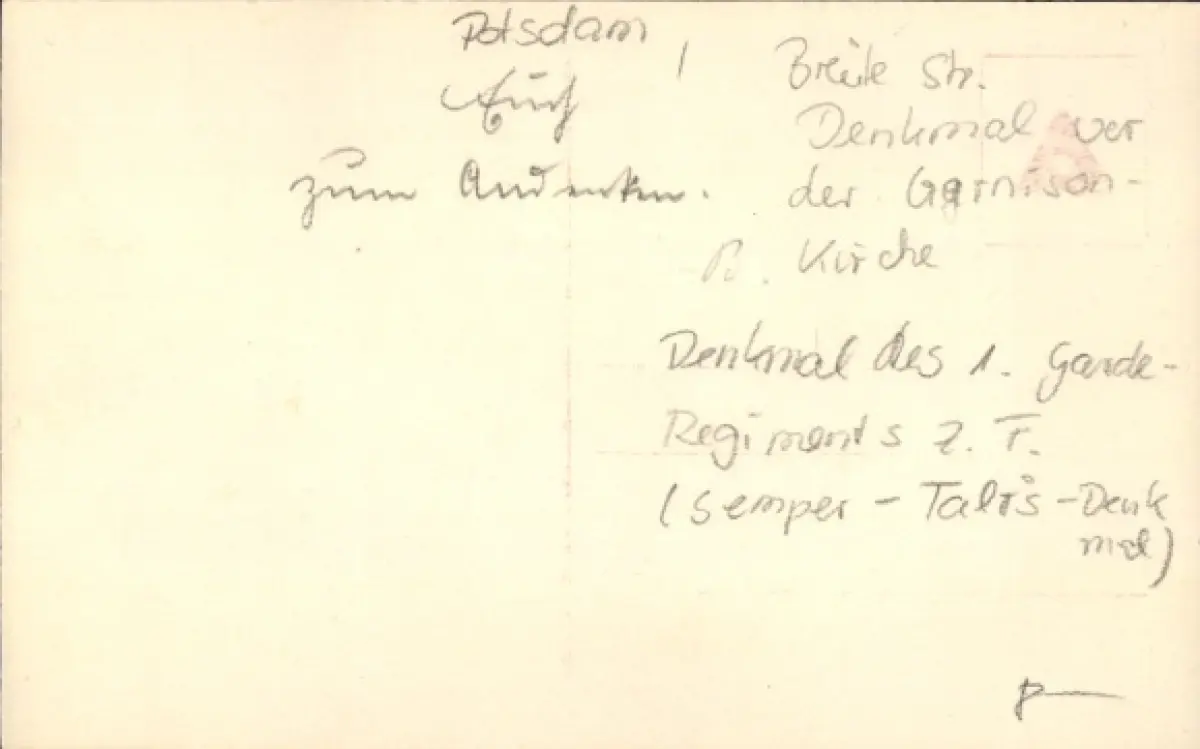 Potsdam,
Auch
zum Andenken.
Breite Str.
Denkmal vor
der Garnison-
Kirche
Denkmal des 1. Garde-
Regiments z. F.
(Semper-Talis-Denk
mal)